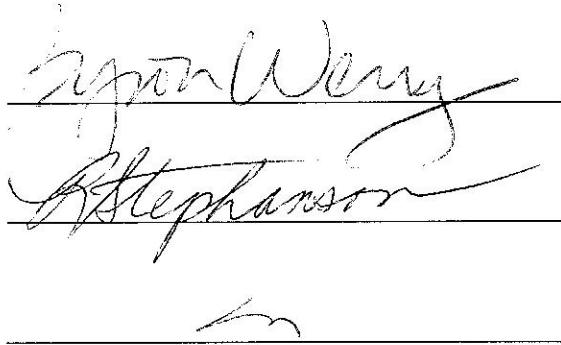 Byron Werry
RStephanson